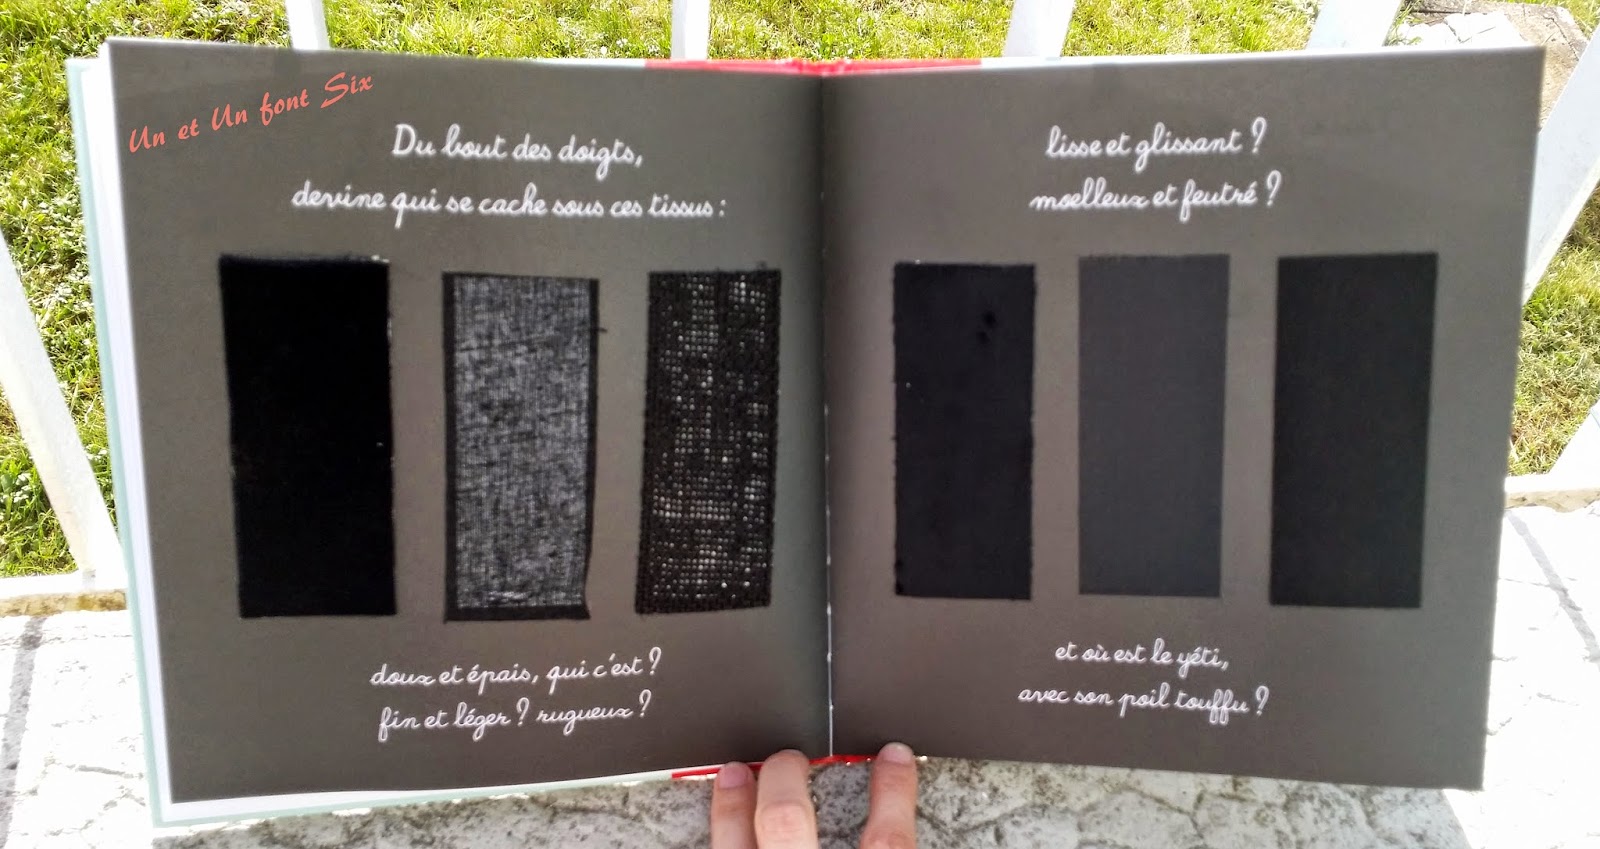 Un et Un font Six
Du bout des doigts,
devine qui se cache sous ces tissus :
doux et épais, qui c'est ?
fin et léger ? rugueux ?
lisse et glissant ?
moelleux et feutré ?
et où est le yéti,
avec son poil touffu ?